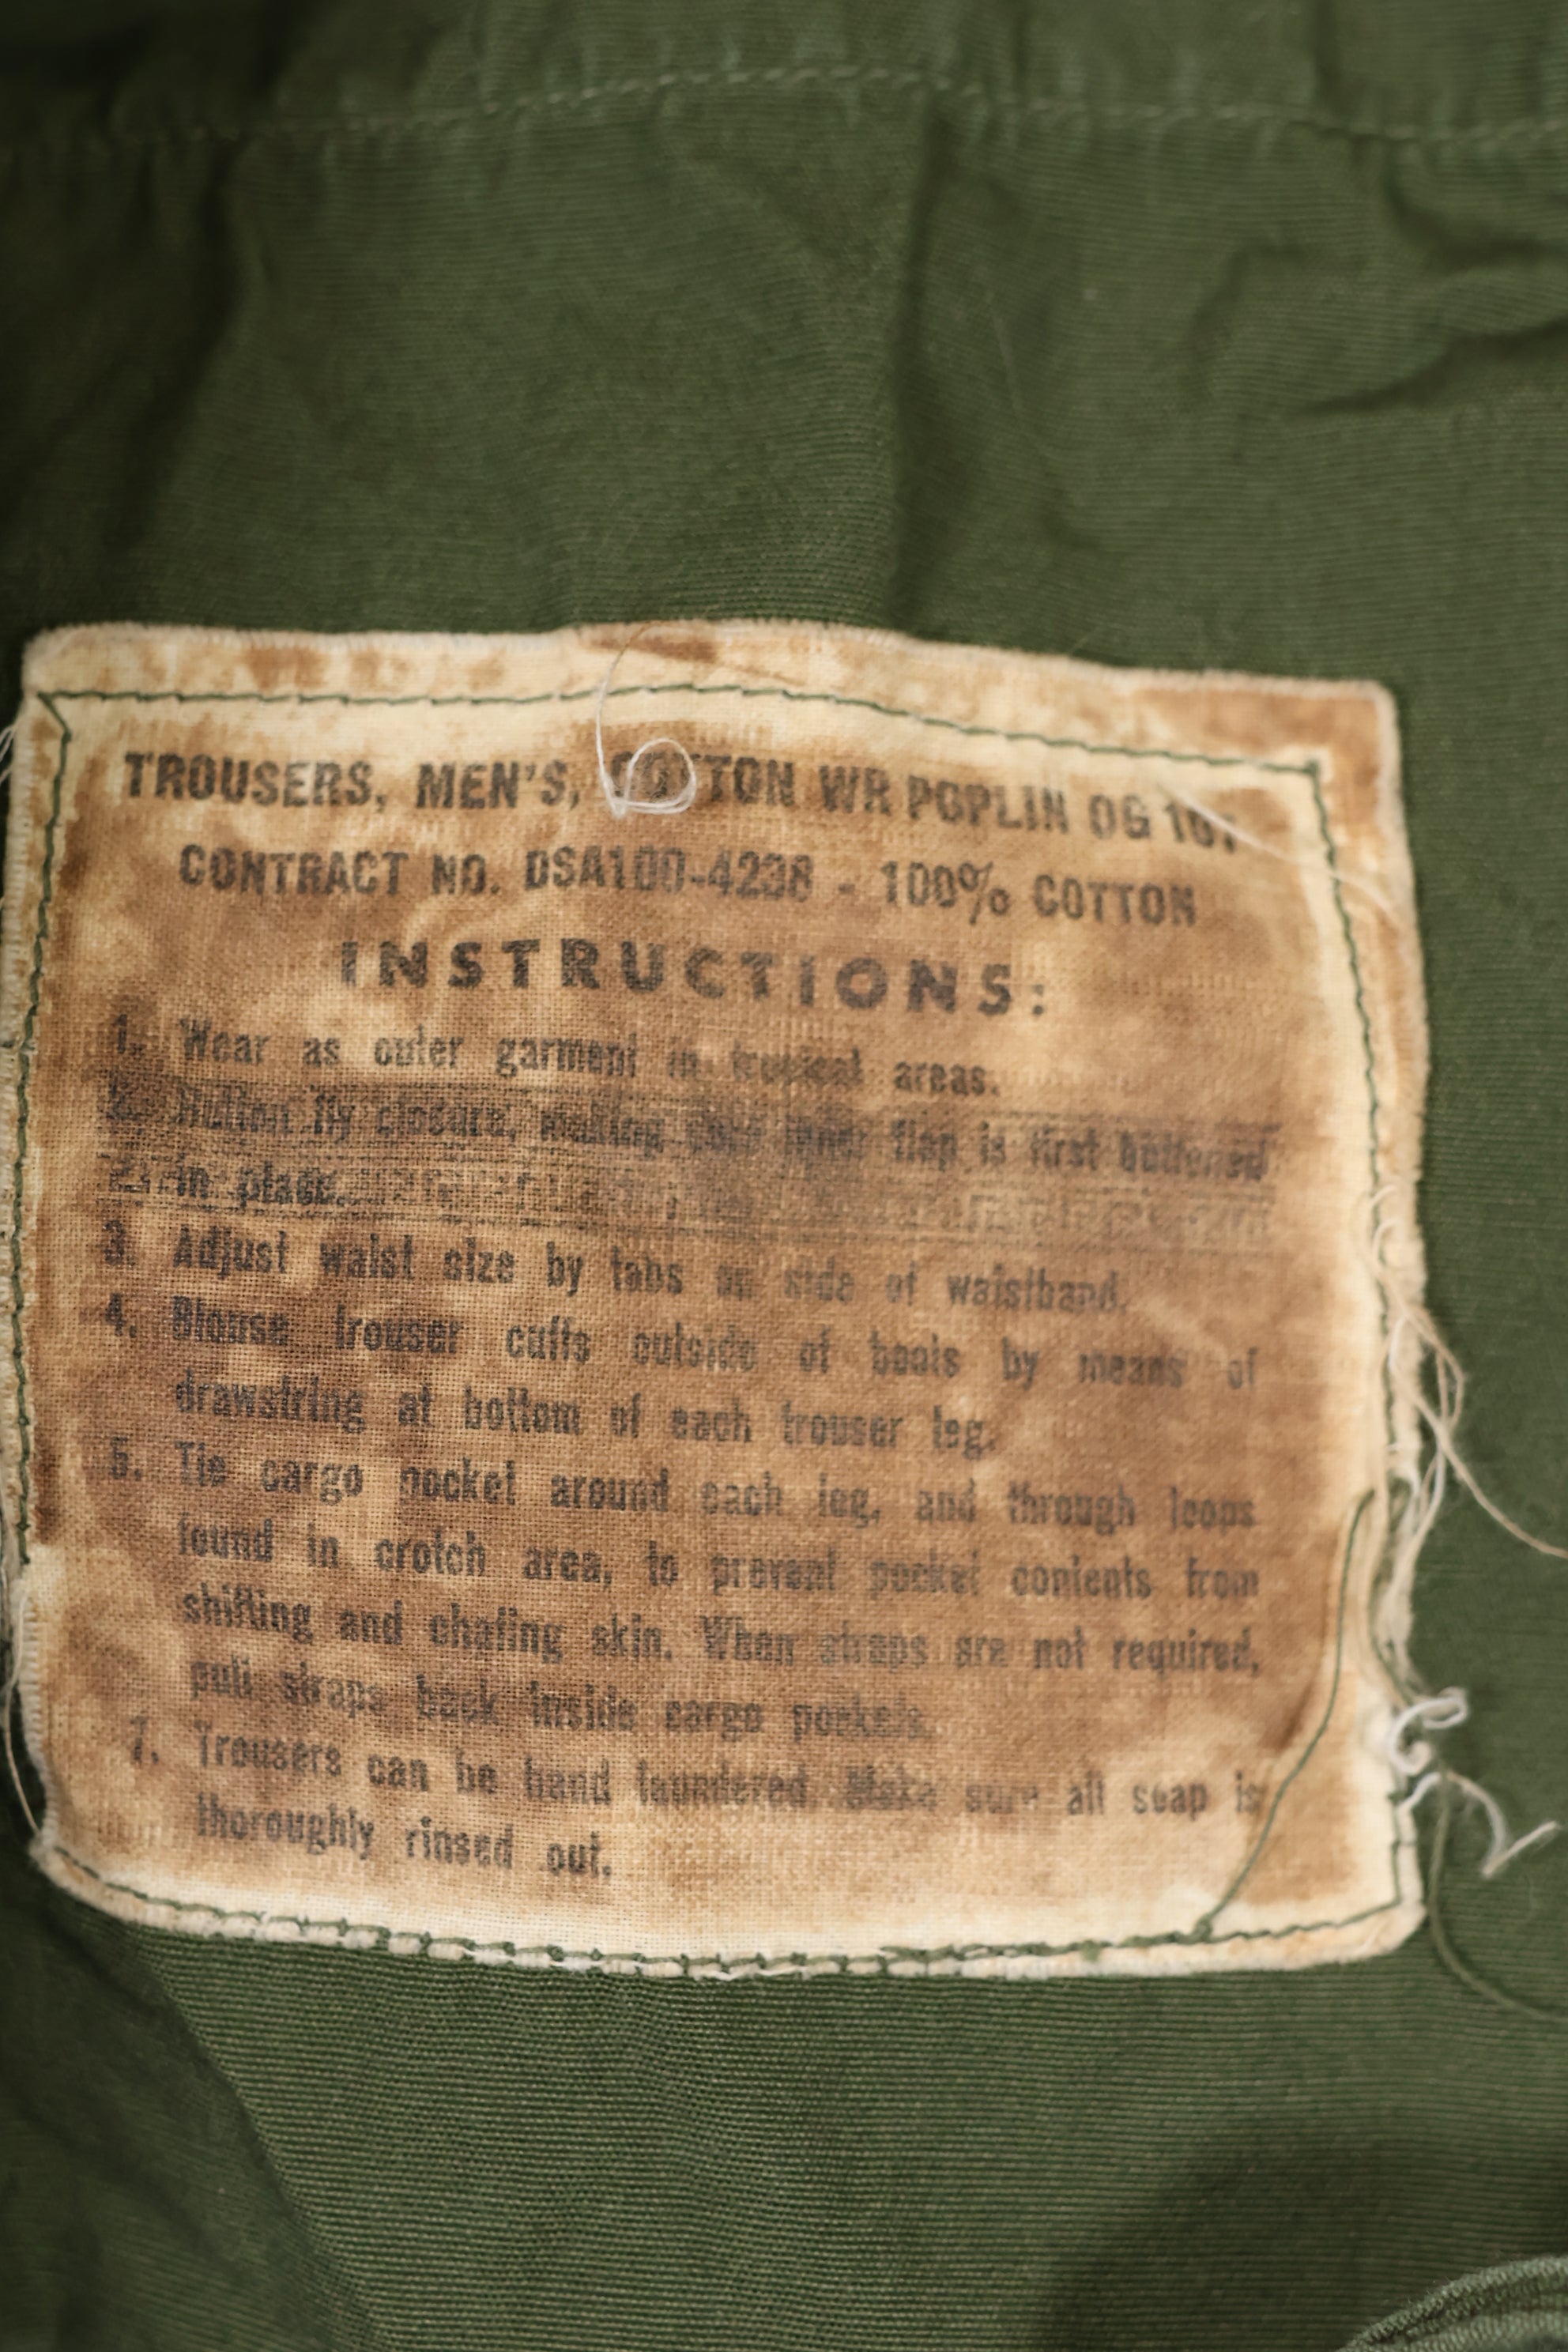 TROUSERS, MEN'S, COTTON WR POPLIN OG 107
CONTRACT NO. DSA100-4238 - 100% COTTON
INSTRUCTIONS:
1. Wear as outer garment in tropical areas.
2. Button fly closure, making sure inner flap is first buttoned
in place.
3. Adjust waist size by tabs on side of waistband.
4. Blouse trouser cuffs outside of boots by means of
drawstring at bottom of each trouser leg.
5. Tie cargo pocket around each leg, and through loops
found in crotch area, to prevent pocket contents from
shifting and chafing skin. When straps are not required,
pull straps back inside cargo pockets.
7. Trousers can be hand laundered. Make sure all soap is
thoroughly rinsed out.